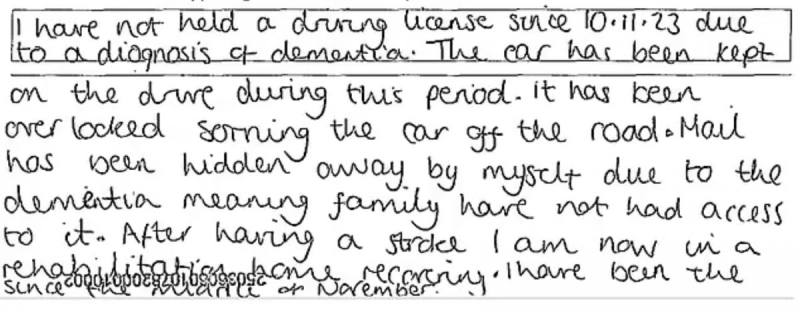 I have not held a driving license since 10.11.23 due
to a diagnosis of dementia. The car has been kept
on the drive during this period. it has been
overlooked sorning the car off the road. Mail
has been hidden away by myself due to the
dementia meaning family have not had access
to it. After having a stroke I am now in a
rehabilitation home recovering. I have been the
since the middle of November.